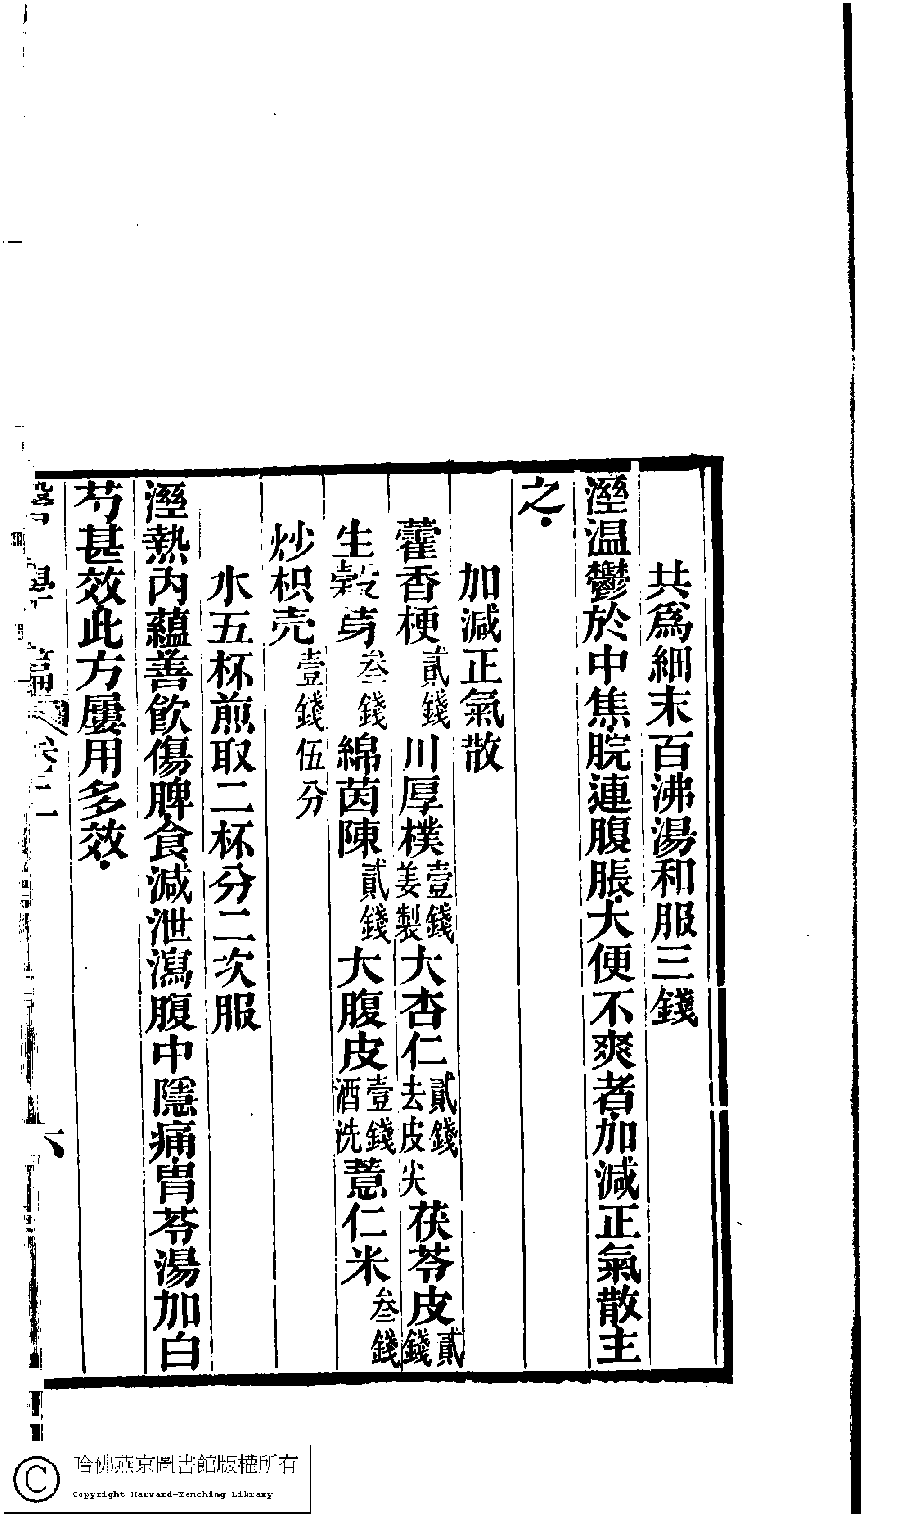 共爲細末百沸湯和服三錢
溼温鬱於中焦脘連腹脹大便不爽者加減正氣散主
之
加減正氣散
藿香梗貳錢川厚樸壹錢姜製大杏仁貳錢去皮尖茯苓皮貳錢
生穀芽叁錢綿茵陳貳錢大腹皮壹錢酒洗薏仁米叁錢
炒枳壳壹錢伍分
水五杯煎取二杯分二次服
溼熱內蘊善飮傷脾食減泄瀉腹中隱痛胃苓湯加白
芍甚效此方屢用多效
醫學篇 卷二 六
哈佛燕京圖書館版權所有
Copyright Harvard-Yenching Library